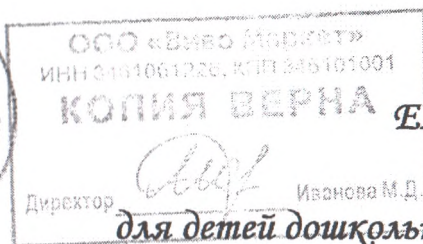 ООО «Виво Маркет»
ИНН 3461061226, КПП 346101001
КОПИЯ ВЕРНА
Директор Иванова М.Д.
для детей дошколь